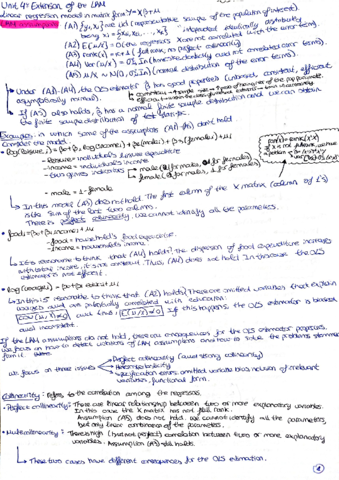 Unit 4: Extension of the LRM
Linear regression model in matrix form: Y=Xβ+u
LRM Assumptions
(A1) {yi, xi} are iid (representative sample of the population of interest)
being xi = {x1i, x2i, ..., xki}
independent identically distributed
(A2) E(u/X) = 0 (the regressors X are not correlated with the error term).
(A3) rank(X) = k+1 (full rank, no perfect collinearity)
(A4) Var(u/X) = σ²In (homoskedasticity and not correlated error terms)
(A5) u/X ~ N(0, σ²In) (normal distribution of the error terms).
Under (A1)-(A4), the OLS estimator β̂ has good properties (unbiased, consistent, efficient,
asymptotically normal).
If (A5) also holds, β̂ has a normal finite sample distribution and we can obtain
the finite sample distribution of test statistics.
Examples in which some of the assumptions (A1)-(A5) don't hold
Consider the model:
- leisure = individual's leisure expenditure
- income = individual's income
- two gender indicators
male (1 for males, 0 for females)
female (1 for females, 0 for males)
- male = 1 - female
In this model (A3) does not hold. The first column of the X matrix (column of 1's)
is the sum of the last two columns.
There is perfect collinearity. We cannot identify all the parameters.
food = β0 + β1 income + u
- food = household's food expenditure
- income = household's income
It is reasonable to think that (A4) holds? The dispersion of food expenditure increases
with income, it is not constant. Thus, (A4) does not hold. In this case the OLS
estimator is not efficient.
In this is reasonable to think that (A2) holds? There are omitted variables that explain
wages and are potentially correlated with education.
If this happens the OLS estimator is biased
and inconsistent.
If the LRM assumptions do not hold, there are consequences for the OLS estimator properties.
We focus on how to detect violations of LRM assumptions and how to solve the problems stemming
from it
We focus on three issues
Perfect collinearity (and strong collinearity)
Heteroskedasticity
Specification errors: omitted variable bias, inclusion of irrelevant
variables, functional form.
Collinearity: refers to the correlation among the regressors.
• Perfect collinearity: There are linear relationship between two or more explanatory variables.
In this case the X matrix has not full rank.
Assumption (A3) does not hold. We cannot identify all the parameters,
but only linear combinations of the parameters.
• Multicollinearity: There is high (but not perfect) correlation between two or more explanatory
variables. Assumption (A3) still holds.
These two cases have different consequences for the OLS estimation.
1